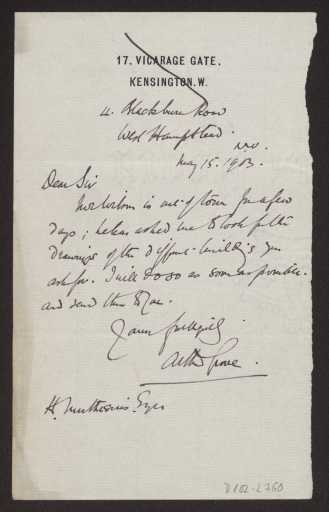 17, VICARAGE GATE,
KENSINGTON.W.
4. Blackburn Road
West Hampstead
N.W.
May 15. 1903.
Dear Sir
is out of town for a few
days; he has asked me to look for the
drawings of the different buildings you
ask for. I will do so as soon as possible.
and send them to you.
Yours faithfully
Arthur Grove.
H. Muthesius. Esqre
D 102-2760